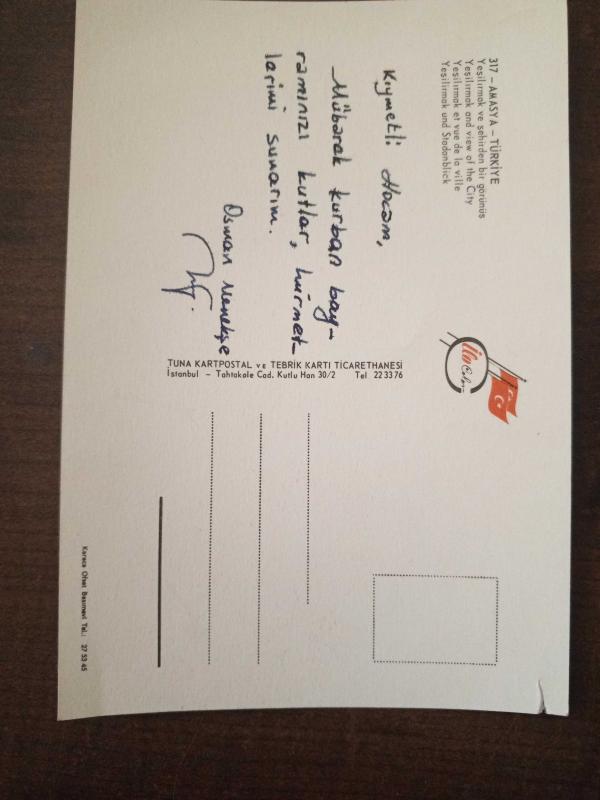 317 – AMASYA – TÜRKİYE
Yeşilırmak ve şehirden bir görünüş
Yeşilırmak and view of the City
Yeşilırmak et vue de la ville
Yeşilırmak und Stadanblick
Kıymetli Hocam,
Mübarek kurban bay-
ramınızı kutlar, hürmet-
lerimi sunarım.
Osman Menekşe
TUNA KARTPOSTAL ve TEBRİK KARTI TİCARETHANESİ
İstanbul – Tahtakale Cad. Kutlu Han 30/2 Tel 22 33 76
Color
Karaca Ofset Basımevi Tel.: 27 53 45